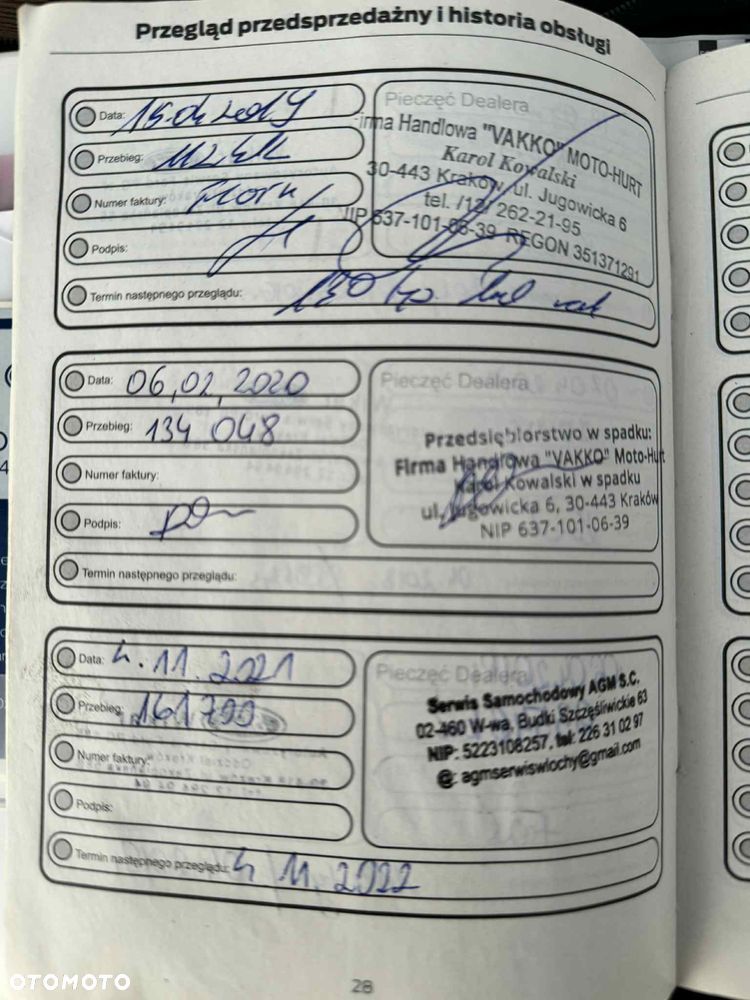 Przegląd przedsprzedażny i historia obsługi
Data: 15.04.2019
Przebieg:
Numer faktury:
Podpis:
Termin następnego przeglądu:
Pieczęć Dealera
Firma Handlowa "VAKKO" MOTO-HURT
Karol Kowalski
30-443 Kraków, ul. Jugowicka 6
tel. /12/ 262-21-95
NIP 637-101-06-39 REGON 351371291
Data: 06,02,2020
Przebieg: 134 048
Numer faktury:
Podpis:
Termin następnego przeglądu:
Pieczęć Dealera
Przedsiębiorstwo w spadku:
Firma Handlowa "VAKKO" Moto-Hurt
Karol Kowalski w spadku
ul. Jugowicka 6, 30-443 Kraków
NIP 637-101-06-39
Data: 4.11.2021
Przebieg: 161,700
Numer faktury:
Podpis:
Termin następnego przeglądu: 4 11.2022
Pieczęć Dealera
Serwis Samochodowy AGM S.C.
02-460 W-wa, Budki Szczęśliwickie 63
NIP: 5223108257, tel: 226 31 02 97
@: agmserwiswlochy@gmail.com
28
OTOMOTO